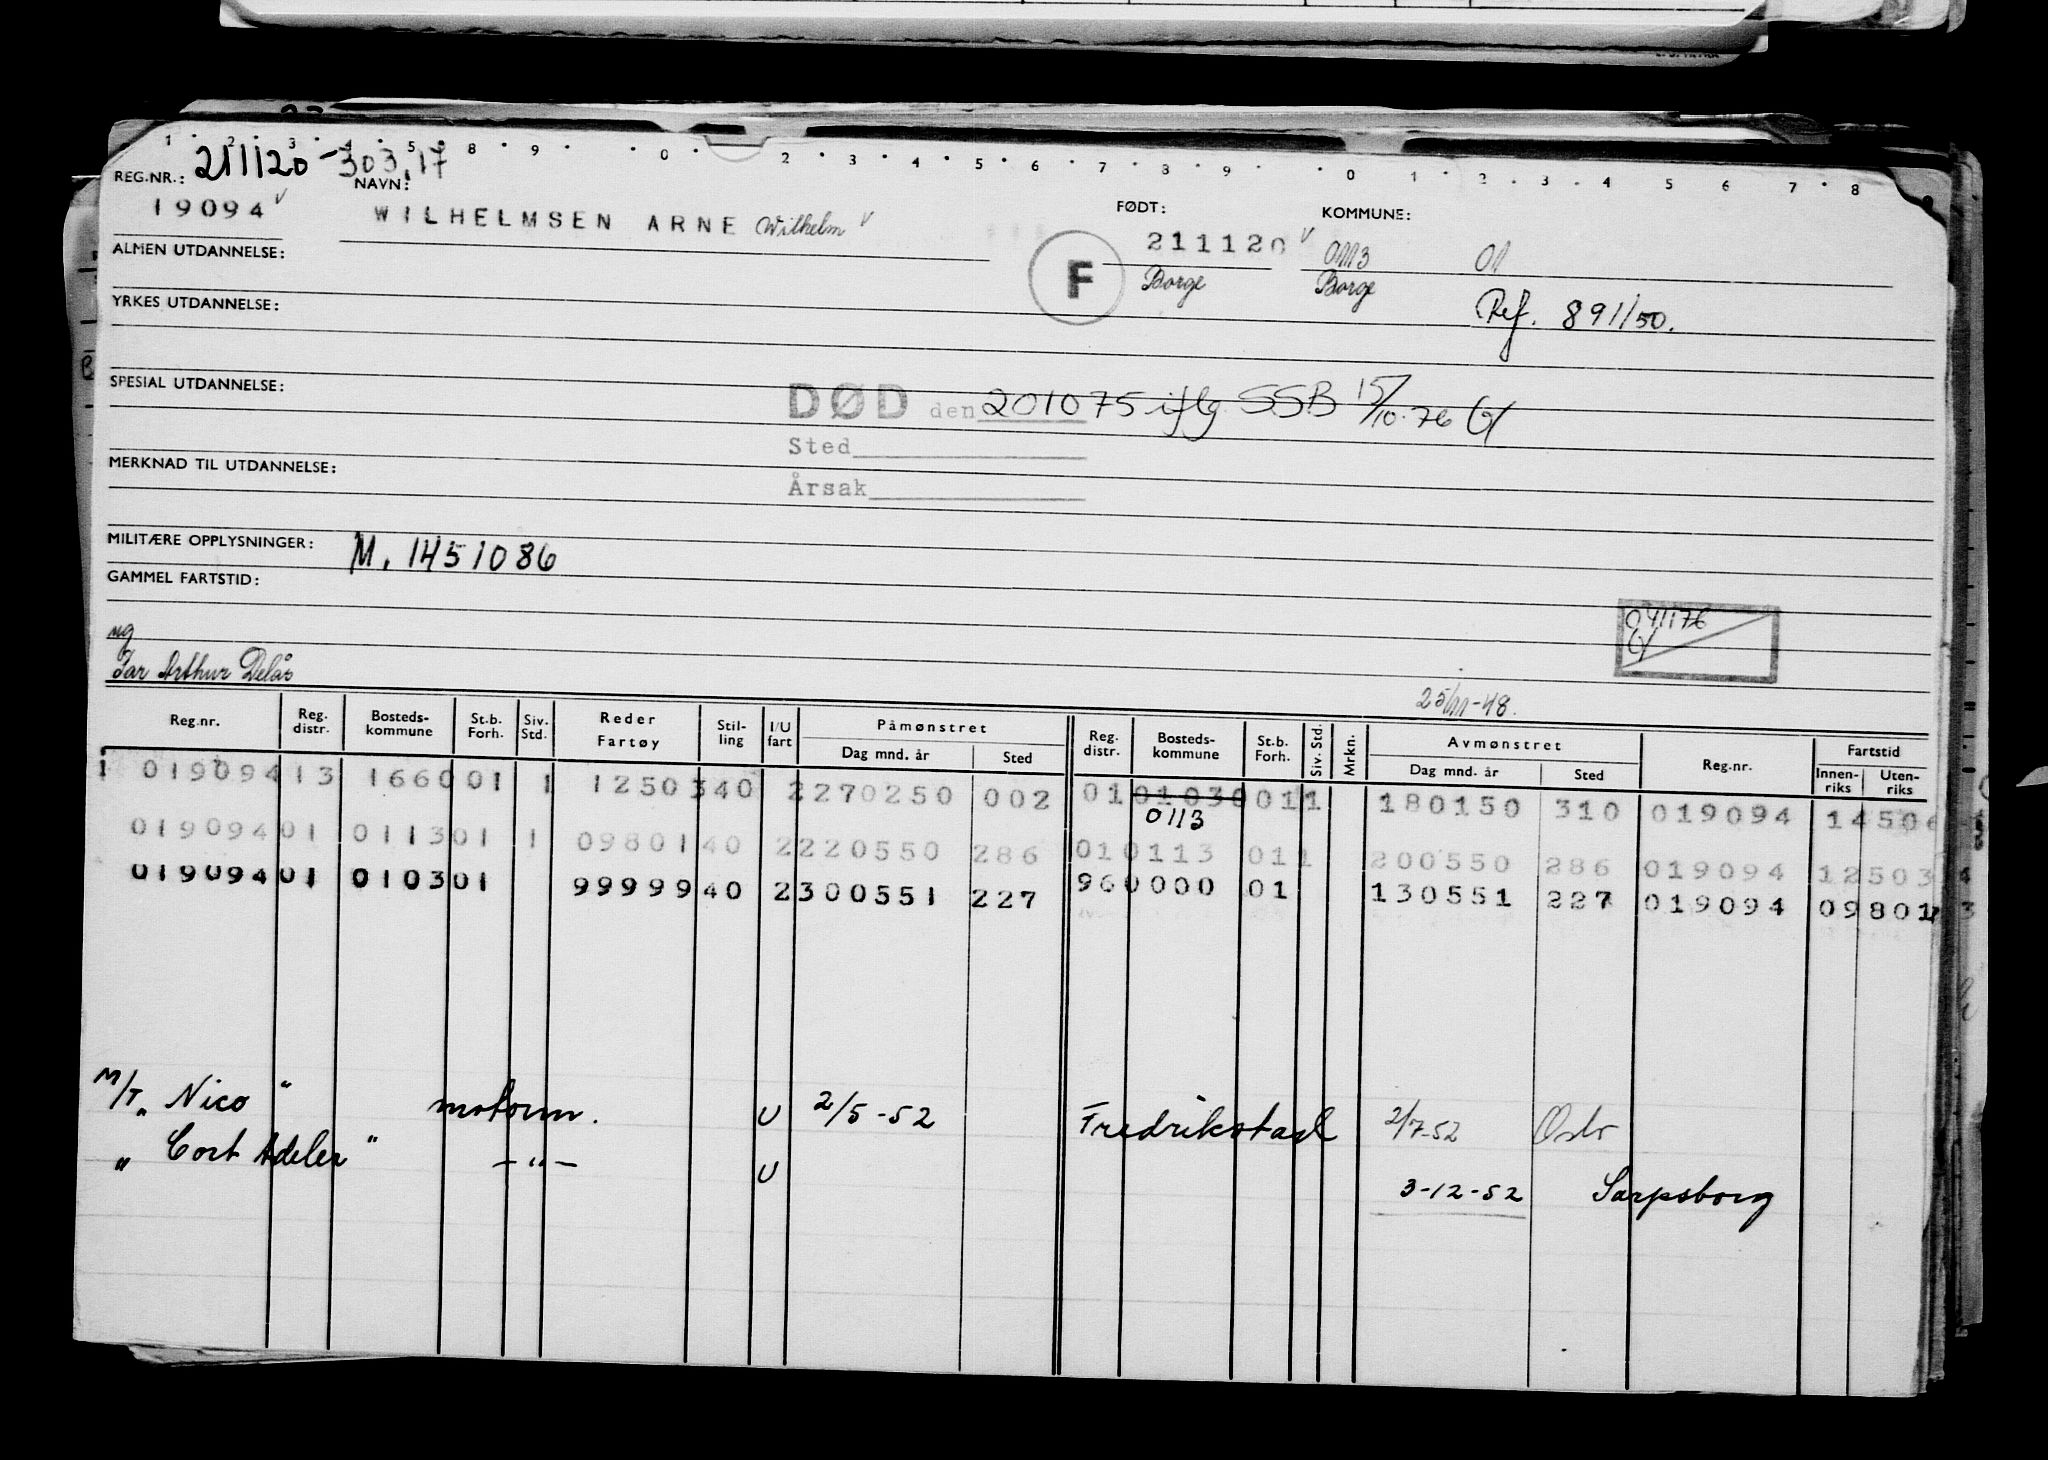 1 2 3 4 5 8 9 0 2 3 4 5 6 7 8 9 0 1 2 3 4 5 6 7 8
REG.NR.: 211120-303.17
NAVN:
19094 WILHELMSEN ARNE Wilhelm
FØDT: KOMMUNE:
211120 0113 01
ALMEN UTDANNELSE:
F Borge Borge
YRKES UTDANNELSE:
Ref. 891/50.
SPESIAL UTDANNELSE:
DØD den 201075 iflg SSB 15/10-76
Sted
MERKNAD TIL UTDANNELSE:
Årsak
MILITÆRE OPPLYSNINGER: M. 1451086
GAMMEL FARTSTID:
041176
ug
Far Arthur Delås
25/11-48.
Reg.nr. Reg. distr. Bosteds-kommune St.b. Forh. Siv. Std. Reder Fartøy Stil-ling I/U fart Påmønstret Dag mnd. år Sted Reg. distr. Bosteds-kommune St.b. Forh. Siv. Std. Mrkn. Avmønstret Dag mnd. år Sted Reg.nr. Fartstid Innen-riks Uten-riks
1 019094 13 1660 01 1 1250340 2 270250 002 01 01030 01 1 180150 310 019094 14506
0113
019094 01 0113 01 1 0980140 2 220550 286 01 0113 01 1 200550 286 019094 12503
019094 01 0103 01 9999940 2 300551 227 96 0000 01 130551 227 019094 09801
M/T „Nico" motorm. U 2/5-52 Fredrikstad 2/7-52 Oslo
„ Cort Adeler" -"- U 3-12-52 Sarpsborg